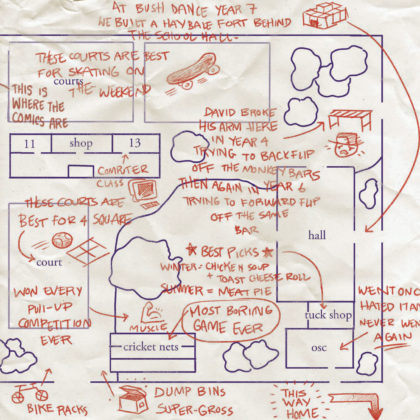 AT BUSH DANCE YEAR 7
WE BUILT A HAYBALE FORT BEHIND
THE SCHOOL HALL-
THESE COURTS ARE BEST
FOR SKATING ON
THE WEEKEND
courts
THIS IS
WHERE THE
COMICS ARE
11
shop
13
COMPUTER
CLASS
DAVID BROKE
HIS ARM HERE
IN YEAR 4
TRYING TO BACKFLIP
OFF THE MONKEY BARS
THEN AGAIN IN YEAR 6
TRYING TO FORWARD FLIP
OFF THE SAME
BAR
THESE COURTS ARE
BEST FOR 4 SQUARE
court
hall
BEST PICKS
WINTER = CHICKEN SOUP
+ TOAST CHEESE ROLL
SUMMER = MEAT PIE
WON EVERY
PULL-UP
COMPETITION
EVER
MUSCLE
MOST BORING
GAME EVER
cricket nets
tuck shop
osc
WENT ONCE
HATED IT AND
NEVER WENT
AGAIN
BIKE RACKS
DUMP BINS
SUPER-GROSS
THIS
WAY
HOME